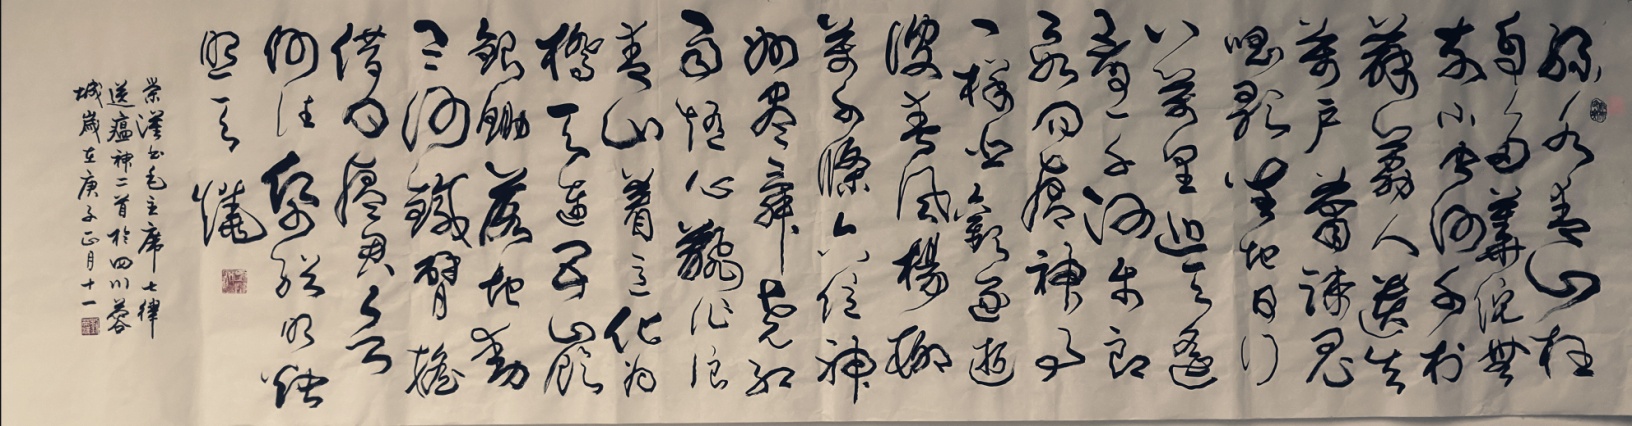 绿水青山枉
自多華佗無
奈小虫河千村
薜荔人遗矢
萬户萧疎鬼
唱歌坐地日行
八萬里巡天遥
看一千河牛郎
欲问瘟神事
一樣悲歡逐逝
波春风楊柳
萬千條六億神
州盡舜堯红
雨随心翻作浪
青山着意化为
橋天連五岭
銀鋤落地動
三河鐵臂摇
借问瘟君欲
何往纸船明烛
照天燒
荣漢书毛主席七律
送瘟神二首於四川蓉
城歲在庚子正月十一